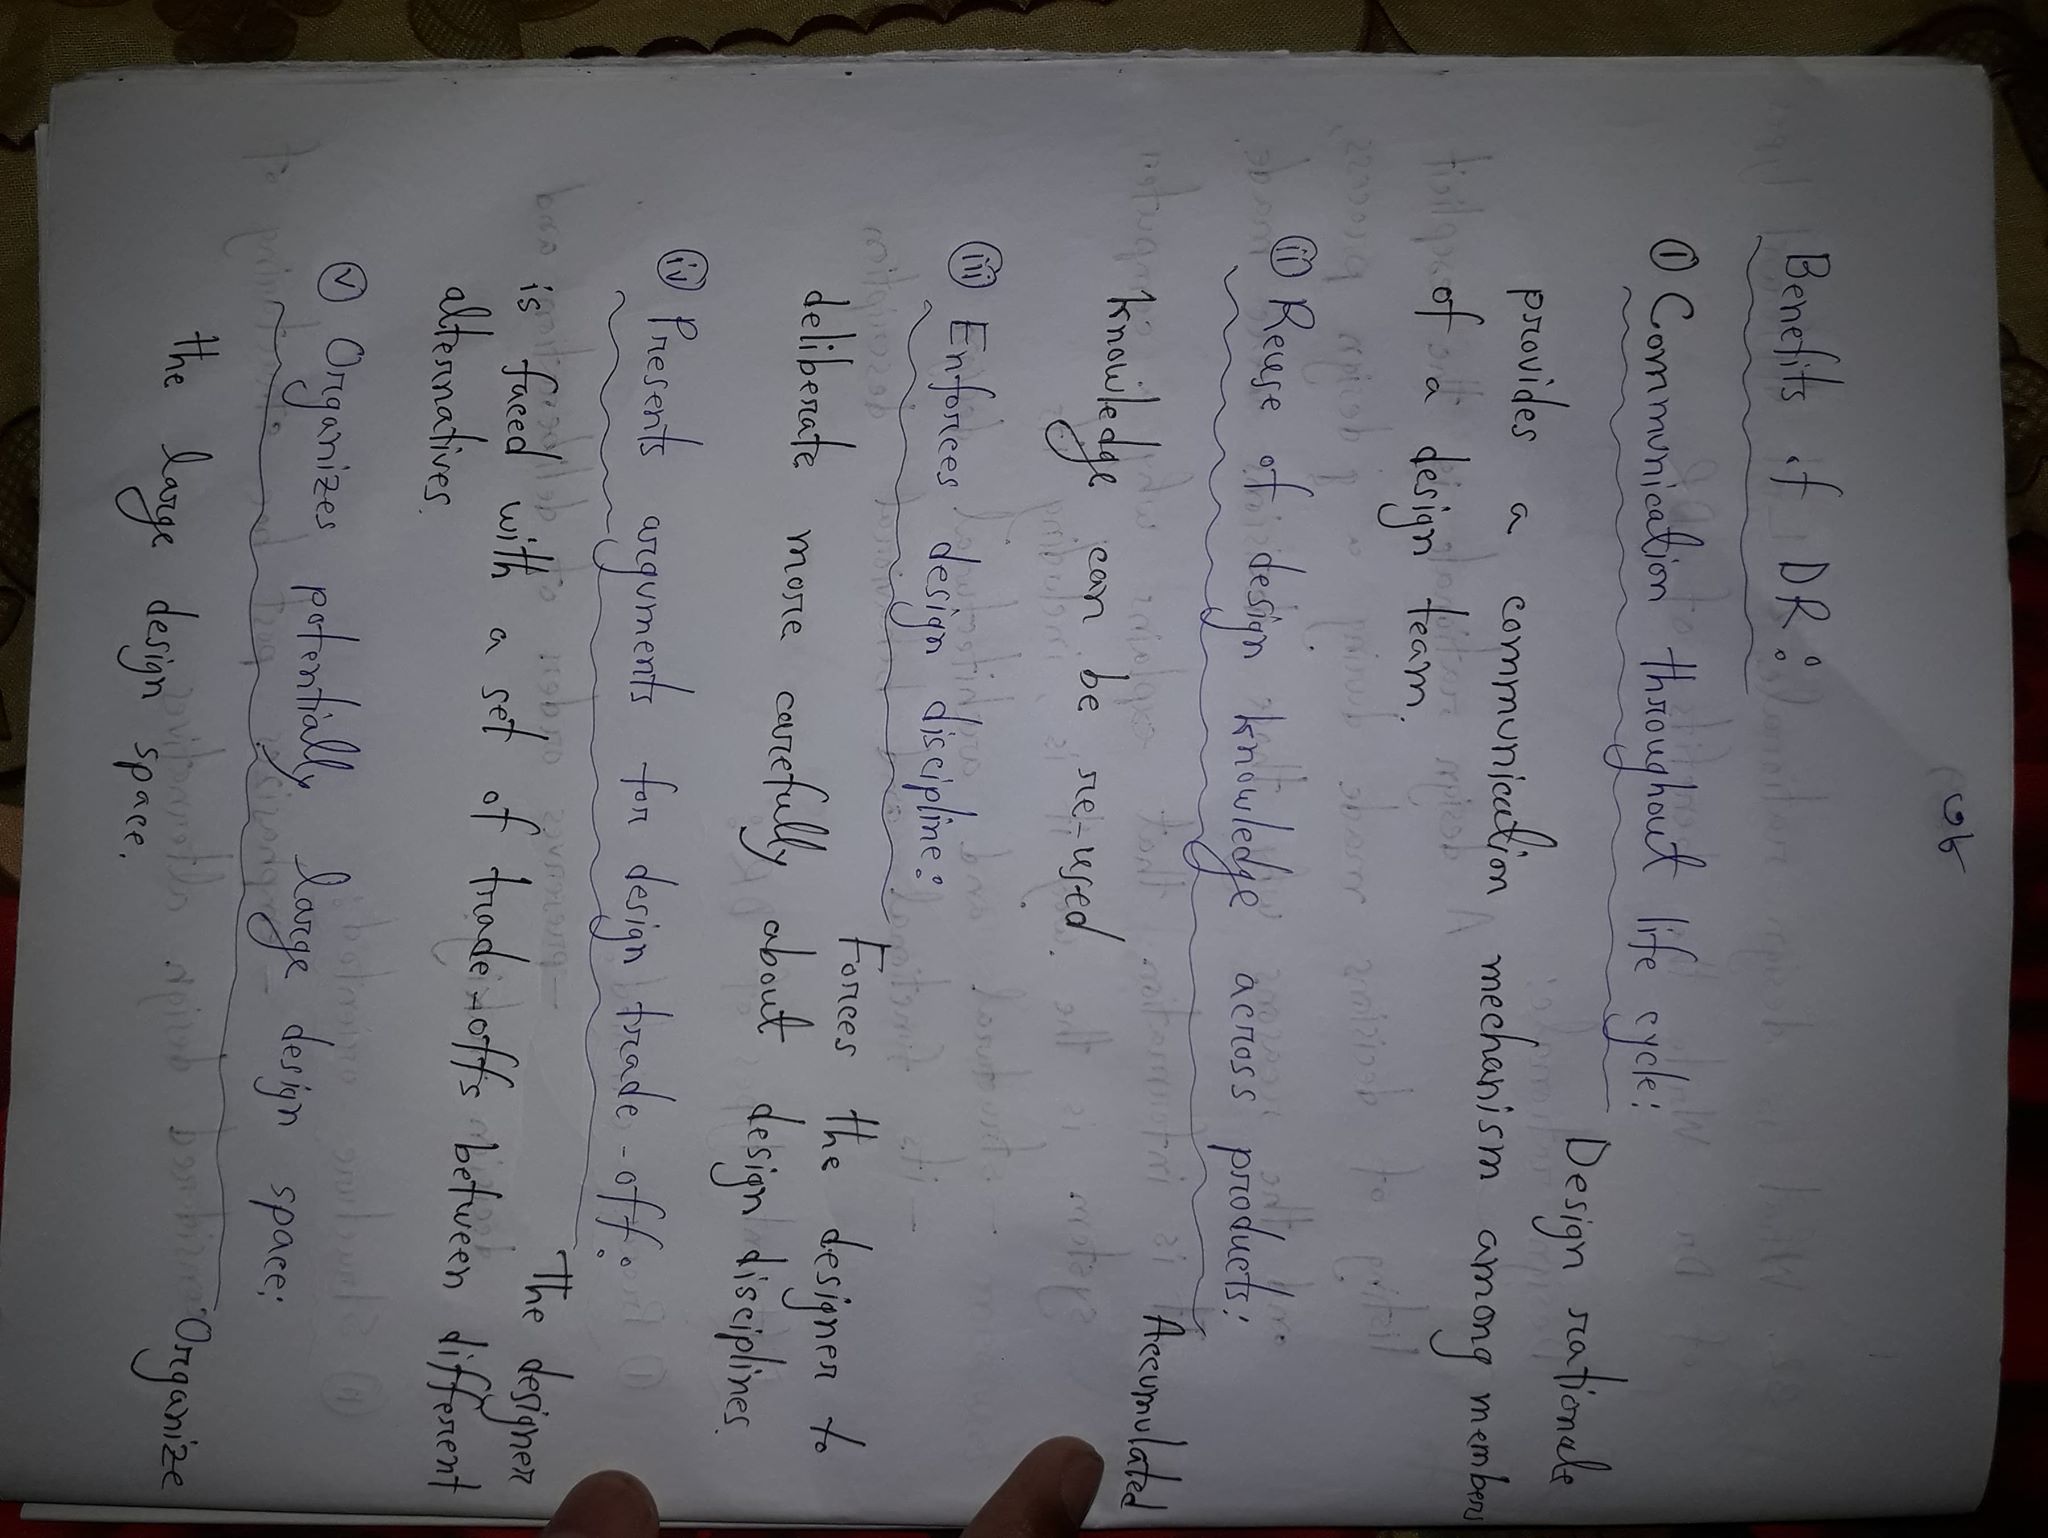 ৩৮
Benefits of DR:
i Communication throughout life cycle:
Design rationale
provides a communication mechanism among members
of a design team.
ii Reuse of design knowledge across products:
Accumulated
knowledge can be re-used.
iii Enforces design discipline:
Forces the designer to
deliberate more carefully about design disciplines.
iv Presents arguments for design trade-off:
The designer
is faced with a set of trade-offs between different
alternatives.
v Organizes potentially large design space:
Organize
the large design space.